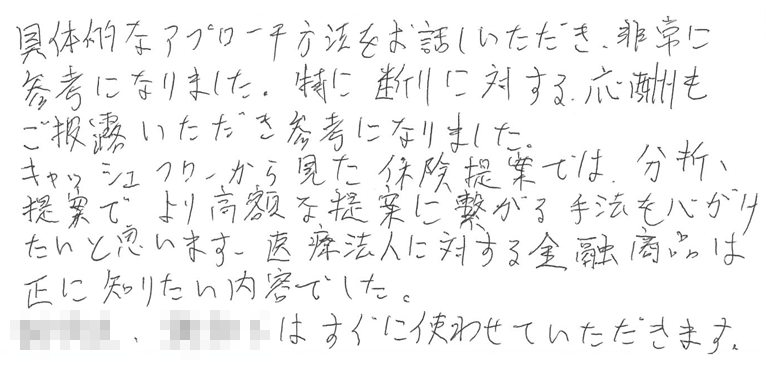 具体的なアプローチ方法をお話しいただき、非常に
参考になりました。特に断りに対する応酬も
ご披露いただき参考になりました。
キャッシュフローから見た保険提案では、分析、
提案でより高額な提案に繋がる手法を心がけ
たいと思います。医療法人に対する金融商品は
正に知りたい内容でした。
、はすぐに使わせていただきます。